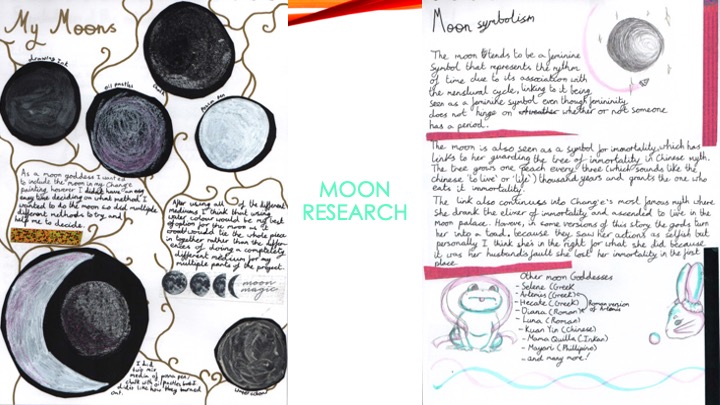 My Moons
drawing Ink
oil pastles
chalk
Posca pen
As a moon goddess I wanted
to include the moon in my Chang'e
painting, however I didn't have an easy
time deciding on what method I
wanted to do the moon so did multiple
different methods to try and
help me to decide.
After using all of the different
mediums I think that using
water colour would be my best
option for the moon as it
would tie the whole piece
in together rather than the
of doing a completely
different medium for my
multiple parts of the project.
moon
magic
I did
mix
media of posca pen,
chalk with oil pastles but
like how they turned
out.
MOON
RESEARCH
Moon symbolism
The moon tends to be a feminine
symbol that represents the rythm
of time due to its association with
the menstrual cycle, linking to it being
seen as a feminine symbol even though femininity
does not henge on whether or not someone
has a period.
The moon is also seen as a symbol for immortality which has
links to her guarding the tree of immortality in Chinese myth.
The tree grows one peach every three (which sounds like the
chinese 'to live' or 'life') thousand years and grants the one who
eats it immortality.
The link also continues into Chang'e's most famous myth where
she drank the elixer of immortality and ascended to live in the
moon palace. However, in some versions of this story the gods turn
her into a toad because they saw her actions as selfish but
personally I think she's in the right for what she did because
it was her husbands fault she lost her immortality in the first
place.
Other moon Goddesses
- Selene (Greek
- Artemis (Greek)
- Hecate (Greek)
- Diana (Roman)
Roman version
of Artemis
- Luna (Roman)
- Kuan Yin (Chinese)
- Mama Quilla (Inkan)
- Mayari (Phillipino)
- and many more!